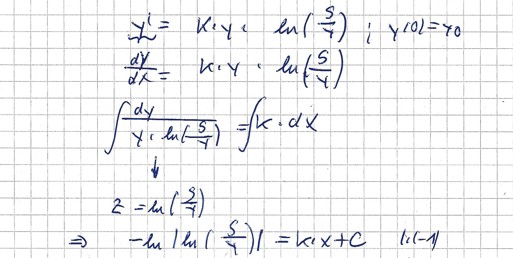 y' = k · y · ln(S/y) ; y(0) = y0
dy/dx = k · y · ln(S/y)
∫ dy / (y · ln(S/y)) = ∫ k · dx
↓
z = ln(S/y)
⇒ -ln |ln(S/y)| = k · x + C   | · (-1)